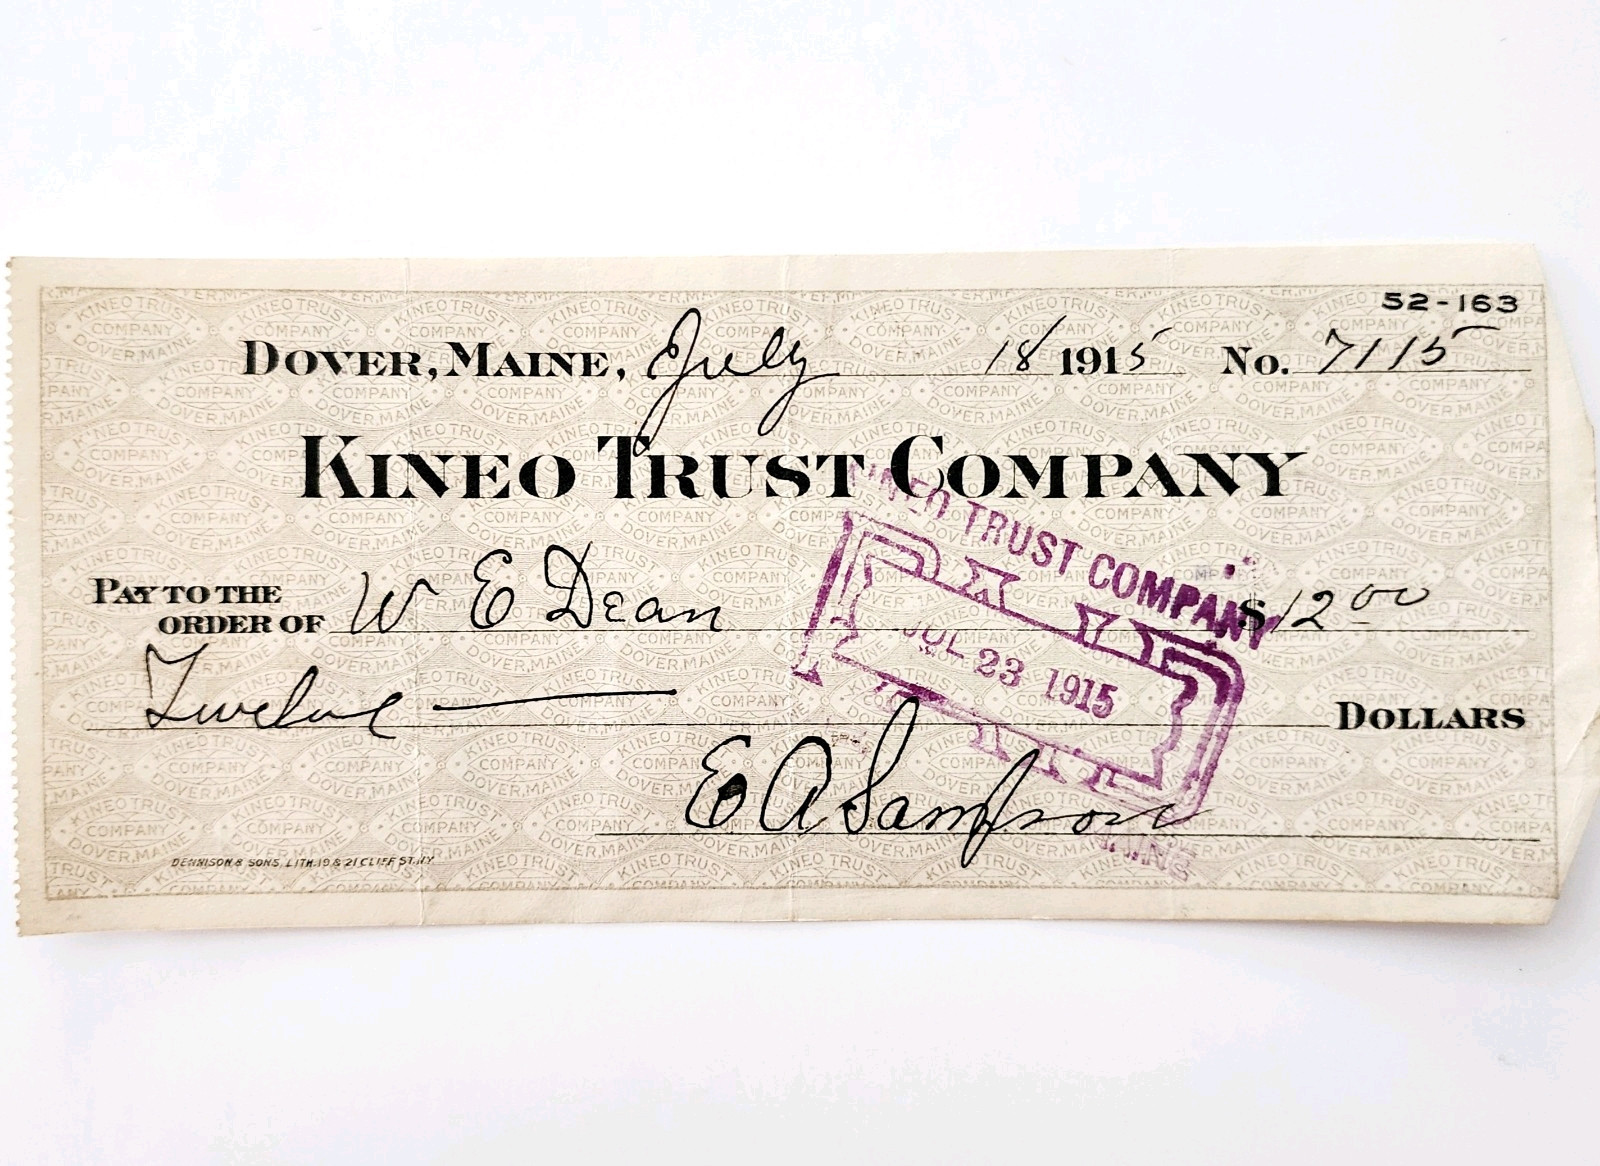 52-163
DOVER, MAINE, July 18 1915 No. 7115
KINEO TRUST COMPANY
PAY TO THE
ORDER OF W E Dean $ 12 00
Twelve DOLLARS
E A Sampson
KINEO TRUST COMPANY
PAID
JUL 23 1915
MAINE
DENNISON & SONS, LITH. 19 & 21 CLIFF ST. N.Y.